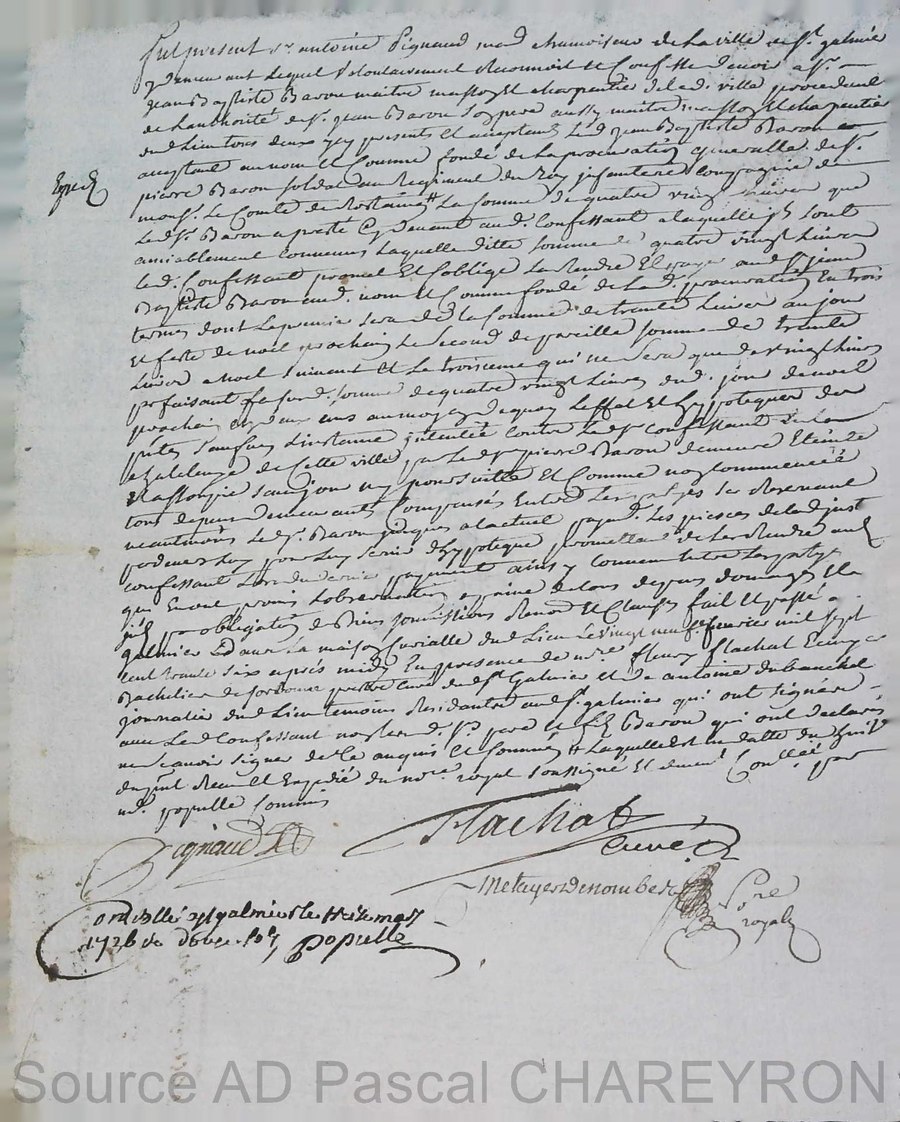 Fut present Sr antoine Pignaud md chamoiseur de la ville de St galmier
y demeurant lequel volontairement Reconnoit et Confesse devoir a Sr
jean Baptiste Baron maitre masson et charpentier de lad. ville procedant
de l'authorité de Sr jean Baron son pere aussy maitre masson et charpentier
dud lieu tous deux icy presents et acceptant led jean Baptiste Baron
acceptant au nom et Comme fondé de la procuration generalle de Sr
pierre Baron soldat au Regiment du Roy infanterie compagnie de
Expedié
monsr le Comte de Rostaing la somme de quatre vingt livres que
led Sr Baron a presté cy devant aud. Confessant a laquelle ils sont
amiablement convenus laquelle ditte somme de quatre vingt livres
led. Confessant promet et s'oblige la rendre et payer aud Sr jean
Baptiste Baron aud. nom et Comme fondé de lad. procuration en trois
termes dont le premier sera de la somme de trente livres au jour
et feste de noël prochain le second de pareille somme de trente
livres a noel suivant et le troisieme qui ne sera que de vingt livres
faisant lad. somme de quatre vingt livres dud. jour de noel
prochain en deux ans au moyen de quoy
l'instance intentée contre led Sr confessant
chatelenie de cette ville par led Sr pierre Baron demeure eteinte
et assoupie sans pouvoir y poursuivre et Comme non commencée
tous depens demeurants Compensés entre les partyes se reservant
neantmoins led Sr Baron jusques a l'actuel payemt. les pieces de lad inst
pour luy servir d'hypoteque promettant de les rendre aud
confessant lors du dernier payement ainsy convenu entre les partyes
qui en ont promis l'observation a peine de tous depens dommages et
par obligation de Biens soumissions Renon et Clauses fait et passé a
galmier dans la maison Curialle dud lieu le vingt neuf fevrier mil sept
cent trente six après midy En presence de mre fleury flachat Ecuyer
Bachelier de sorbonne prestre curé dud St Galmier et de antoine dubanchet
journalier dud lieu temoins Residants aud St galmier qui ont signé
avec led Confessant non led. Srs pere et fils Baron qui ont declaré
ne scavoir signer de ce enquis et sommés laquelle est en datte du
Receu et Expedié du nore royal soussigné et duemt Conllée par
md. populle Commis
Pignaud
Flachat
Curé
Metayer Denombe
Nore
royal
Controllé a St galmier le huit mars
1736 Re douze sols populle
Source AD Pascal CHAREYRON